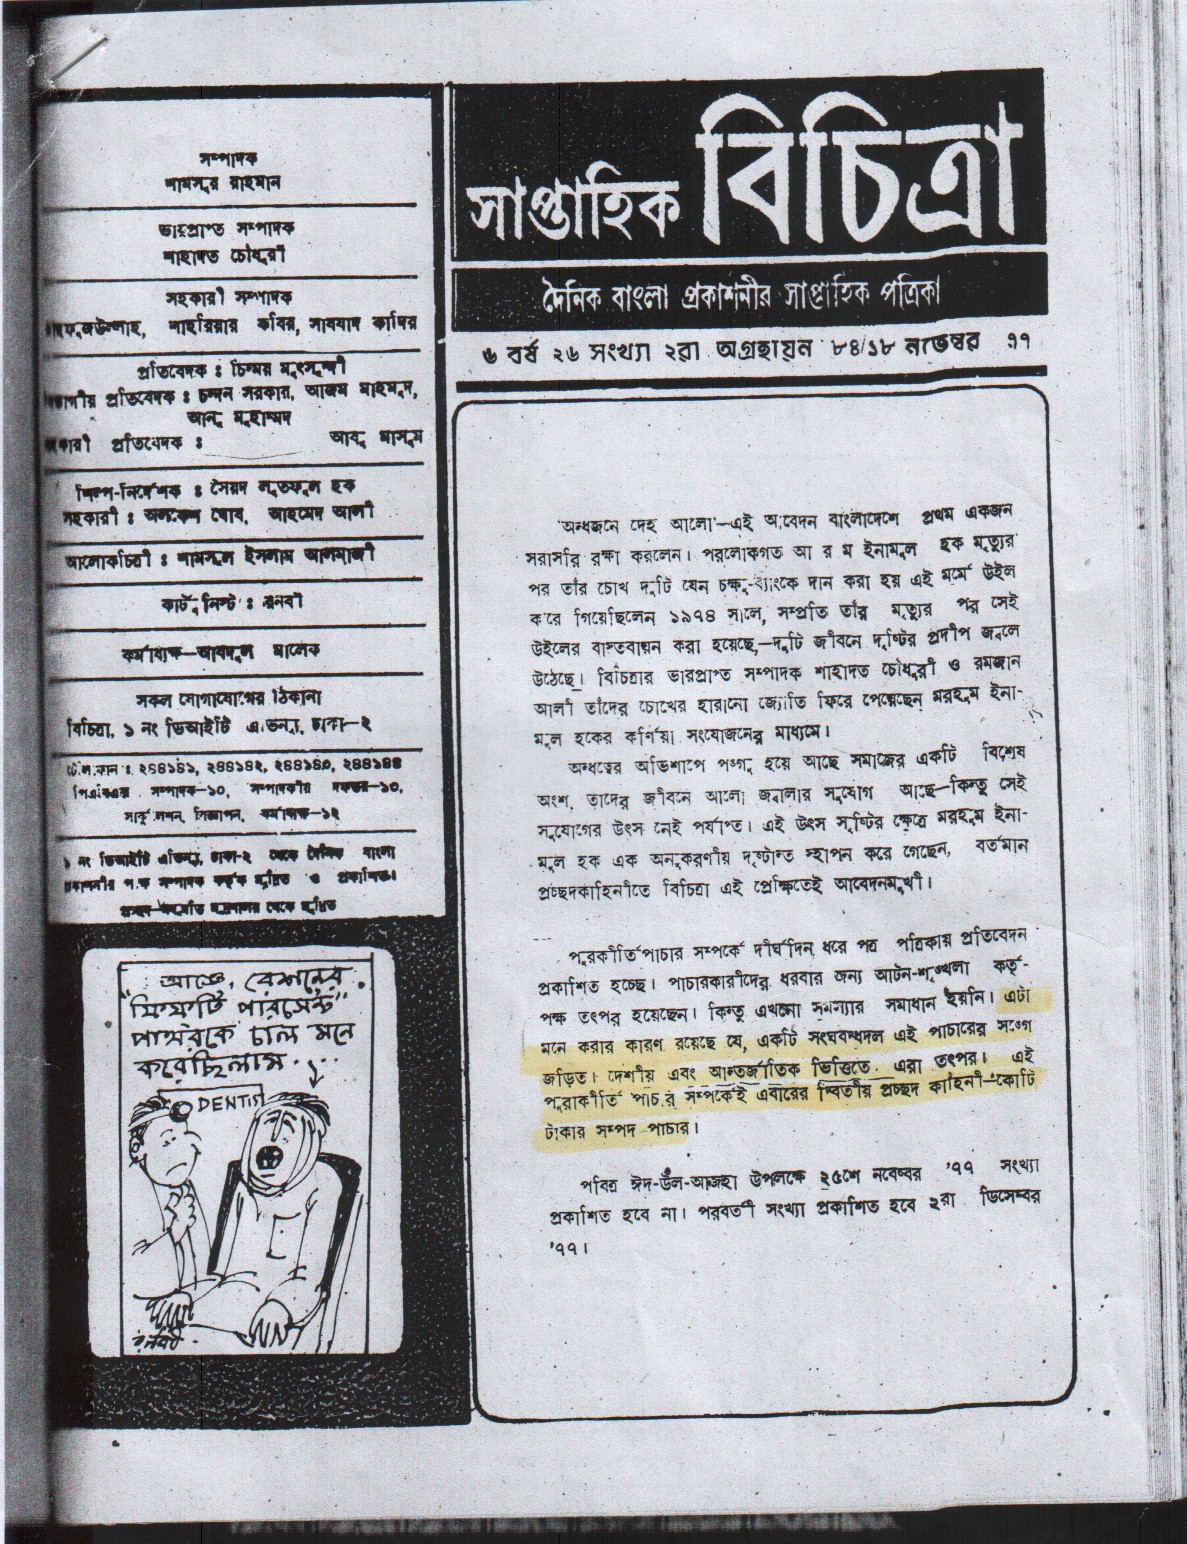 সম্পাদক
শামসুর রাহমান
ভারপ্রাপ্ত সম্পাদক
শাহাদত চৌধুরী
সহকারী সম্পাদক
শাহরিয়ার কবির, সাযযাদ কাদির
প্রতিবেদক : চিন্ময় মুৎসুদ্দী
প্রতিবেদক : চন্দন সরকার, আজম মাহমুদ,
আনু মুহাম্মদ
প্রতিবেদক : আবু মাসুম
শিল্প-নির্দেশক : সৈয়দ লুতফুল হক
সহকারী : অলকেশ ঘোষ, আহমেদ আলী
আলোকচিত্রী : শামসুল ইসলাম আলমাজী
কার্টুনিস্ট : রনবী
কর্মাধ্যক্ষ—আবদুল মালেক
সকল যোগাযোগের ঠিকানা
বিচিত্রা, ১ নং ডিআইটি এভিন্যু, ঢাকা—২
২৪৪১৪১, ২৪৪১৪২, ২৪৪১৪৩, ২৪৪১৪৪
সম্পাদক—১০, সম্পাদকীয় দফতর—১৩,
সার্কুলেশন, বিজ্ঞাপন, কর্মাধ্যক্ষ—১২
১ নং ডিআইটি এভিন্যু, ঢাকা-২ থেকে দৈনিক বাংলা
প্রকাশনীর পক্ষে সম্পাদক কর্তৃক মুদ্রিত ও প্রকাশিত।
থেকে মুদ্রিত
আজ্ঞে, রেশনের
"ফিফটি পারসেন্ট"
পাথরকে চাল মনে
করেছিলাম...
DENTIST
রনবী
সাপ্তাহিক বিচিত্রা
দৈনিক বাংলা প্রকাশনীর সাপ্তাহিক পত্রিকা
৬ বর্ষ ২৬ সংখ্যা ২রা অগ্রহায়ন ৮৪/১৮ নভেম্বর ৭৭
'অন্ধজনে দেহ আলো'—এই আবেদন বাংলাদেশে প্রথম একজন
সরাসরি রক্ষা করলেন। পরলোকগত আ র ম ইনামুল হক মৃত্যুর
পর তাঁর চোখ দুটি যেন চক্ষু-ব্যাংকে দান করা হয় এই মর্মে উইল
করে গিয়েছিলেন ১৯৭৪ সালে, সম্প্রতি তাঁর মৃত্যুর পর সেই
উইলের বাস্তবায়ন করা হয়েছে,—দুটি জীবনে দৃষ্টির প্রদীপ জ্বলে
উঠেছে। বিচিত্রার ভারপ্রাপ্ত সম্পাদক শাহাদত চৌধুরী ও রমজান
আলী তাঁদের চোখের হারানো জ্যোতি ফিরে পেয়েছেন মরহুম ইনা-
মুল হকের কর্ণিয়া সংযোজনের মাধ্যমে।
অন্ধত্বের অভিশাপে পঙ্গু হয়ে আছে সমাজের একটি বিশেষ
অংশ, তাদের জীবনে আলো জ্বালার সুযোগ আছে—কিন্তু সেই
সুযোগের উৎস নেই পর্যাপ্ত। এই উৎস সৃষ্টির ক্ষেত্রে মরহুম ইনা-
মুল হক এক অনুকরণীয় দৃষ্টান্ত স্থাপন করে গেছেন, বর্তমান
প্রচ্ছদকাহিনীতে বিচিত্রা এই প্রেক্ষিতেই আবেদনমুখী।
পুরকীর্তি পাচার সম্পর্কে দীর্ঘদিন ধরে পত্র পত্রিকায় প্রতিবেদন
প্রকাশিত হচ্ছে। পাচারকারীদের ধরবার জন্য আইন-শৃঙ্খলা কর্তৃ-
পক্ষ তৎপর হয়েছেন। কিন্তু এখনো সমস্যার সমাধান হয়নি। এটা
মনে করার কারণ রয়েছে যে, একটি সংঘবদ্ধদল এই পাচারের সঙ্গে
জড়িত। দেশীয় এবং আন্তর্জাতিক ভিত্তিতে এরা তৎপর। এই
পুরাকীর্তি পাচার সম্পর্কেই এবারের দ্বিতীয় প্রচ্ছদ কাহিনী—কোটি
টাকার সম্পদ পাচার।
পবিত্র ঈদ-উল-আজহা উপলক্ষে ২৫শে নবেম্বর '৭৭ সংখ্যা
প্রকাশিত হবে না। পরবর্তী সংখ্যা প্রকাশিত হবে ২রা ডিসেম্বর
'৭৭।